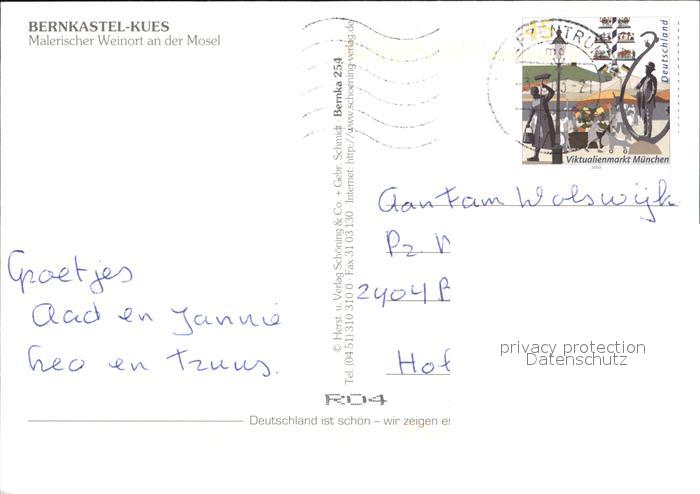 BERNKASTEL-KUES
Malerischer Weinort an der Mosel
45
Deutschland
Viktualienmarkt München
2003
© Herst. u. Verlag Schöning & Co. + Gebr. Schmidt · Bernka 254
Tel. (04 51) 310 310 0 · Fax 31 03 130 · Internet: http://www.schoening-verlag.de
Aan Fam Wolswijk
Pz.
2404
Groetjes
Aad en Jannie
Leo en Truus.
R04
Deutschland ist schön – wir zeigen es
privacy protection
Datenschutz